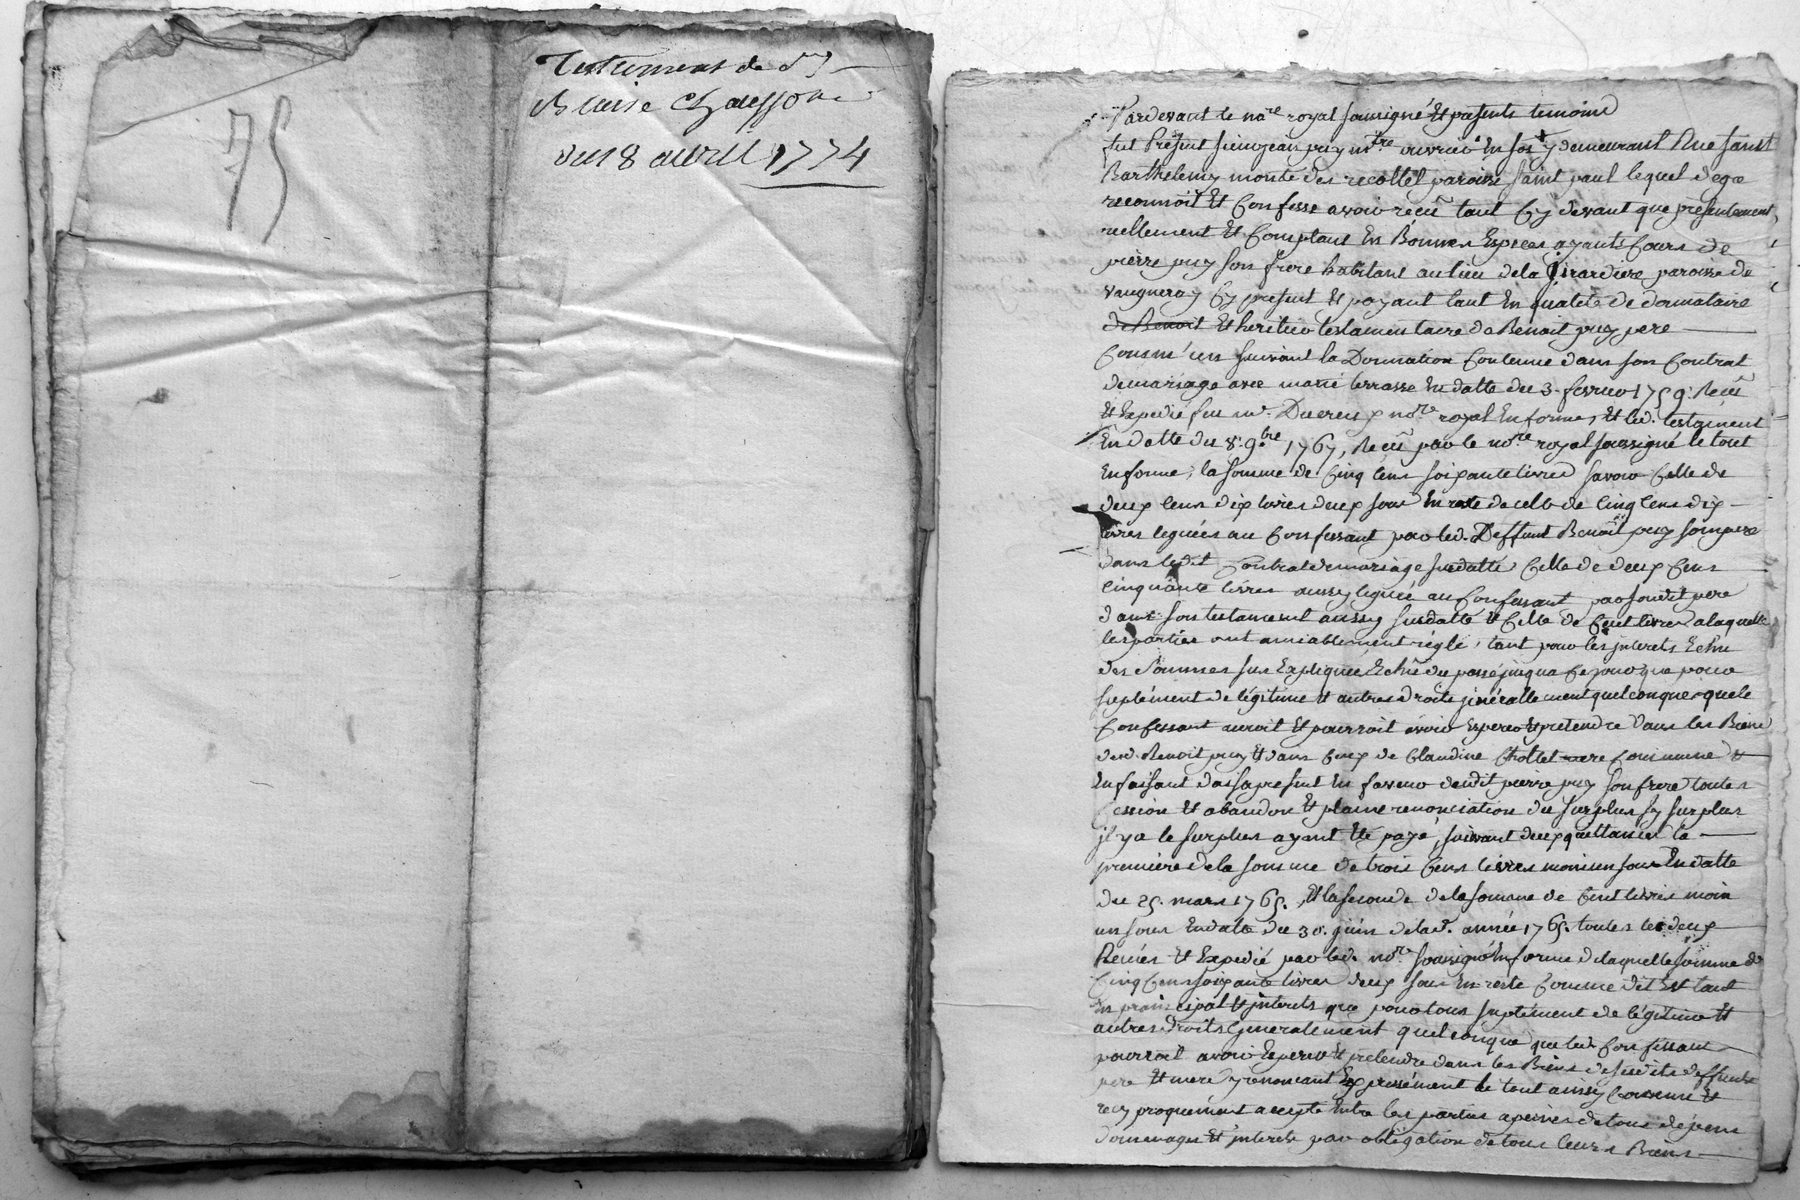 75
Testament de Sr
Blaise Chaussone
du 18 avril 1774
Pardevant le nore royal soussigné Et presents temoins
fut Présent sieur jean puy mtre ouvrier En soi y demeurant Rue saint
Barthelemy monté des recollet paroisse saint paul lequel de gre
reconnoit Et Confesse avoir recû tant Cy devant que presentement
reellement Et Comptant En Bonnes Especes ayants Cours de
pierre puy son frere habitant au lieu de la Girardiere paroisse de
vaugneray Cy present Et payant tant En qualité de donnataire
de Benoit Et heritier testamentaire de Benoit puy pere
Commun suivant la Donnation Contenue dans son Contrat
de mariage avec marie terrasse En datte du 3. fevrier 1759. Recû
Et Expedié feu mr. Ducreux nore royal En forme, Et led. testament
En datte du 8. 9.bre 1767, Recû par le nore royal soussigné le tout
En forme, la somme de Cinq Cens soixante livres savoir Celle de
deux Cens dix livres deux sous En reste de celle de Cinq Cens dix
livres leguées au Confessant par led. Deffunt Benoit puy son pere
dans ledit Contrat de mariage susdatté Celle de deux Cens
Cinquante livres aussy leguée au Confessant par sondit pere
dans son testament aussy susdatté Et Celle de Cent livres a laquelle
les parties ont amiablement réglé, tant pour les jnterets Echu
des sommes sus Expliquées Echû du passé jusqua Ce jour que pour
suplément de légitime Et autres droits généralement quelconques que le
Confessant auroit Et pourroit avoir Esperer Et pretendre dans les Biens
dud. Benoit puy Et dans Ceux de Claudine Chollet mere Commune Et
En faisant dois a present En faveur dudit pierre puy son frere toutes
Cession Et abandon Et plaine renonciation du surplus sy surplus
jl y a le surplus ayant Eté payé, suivant deux quittances la
premiere de la somme de trois Cens livres moins un sous En datte
du 25. mars 1765. Et la seconde de la somme de Cent livres moin
un sous En datte du 30. juin de lad. année 1765. toutes les deux
Reçues Et Expedié par led. nore soussigné En forme de laquelle somme de
Cinq Cens soixante livres deux sous En reste Comme dit Est tant
En principal Et jnterets que pour tous suplement de légitime Et
autres Droits Generalement quelconque que led. Confessant
pourroit avoir Esperer Et pretendre dans les Biens desusdits deffunts
pere Et mere y renoncant Expressément le tout aussy Convenu Et
recyproquement accepte Entre les parties a peines de tous dépens
dommages Et jnterets par obligation de tous leurs Biens